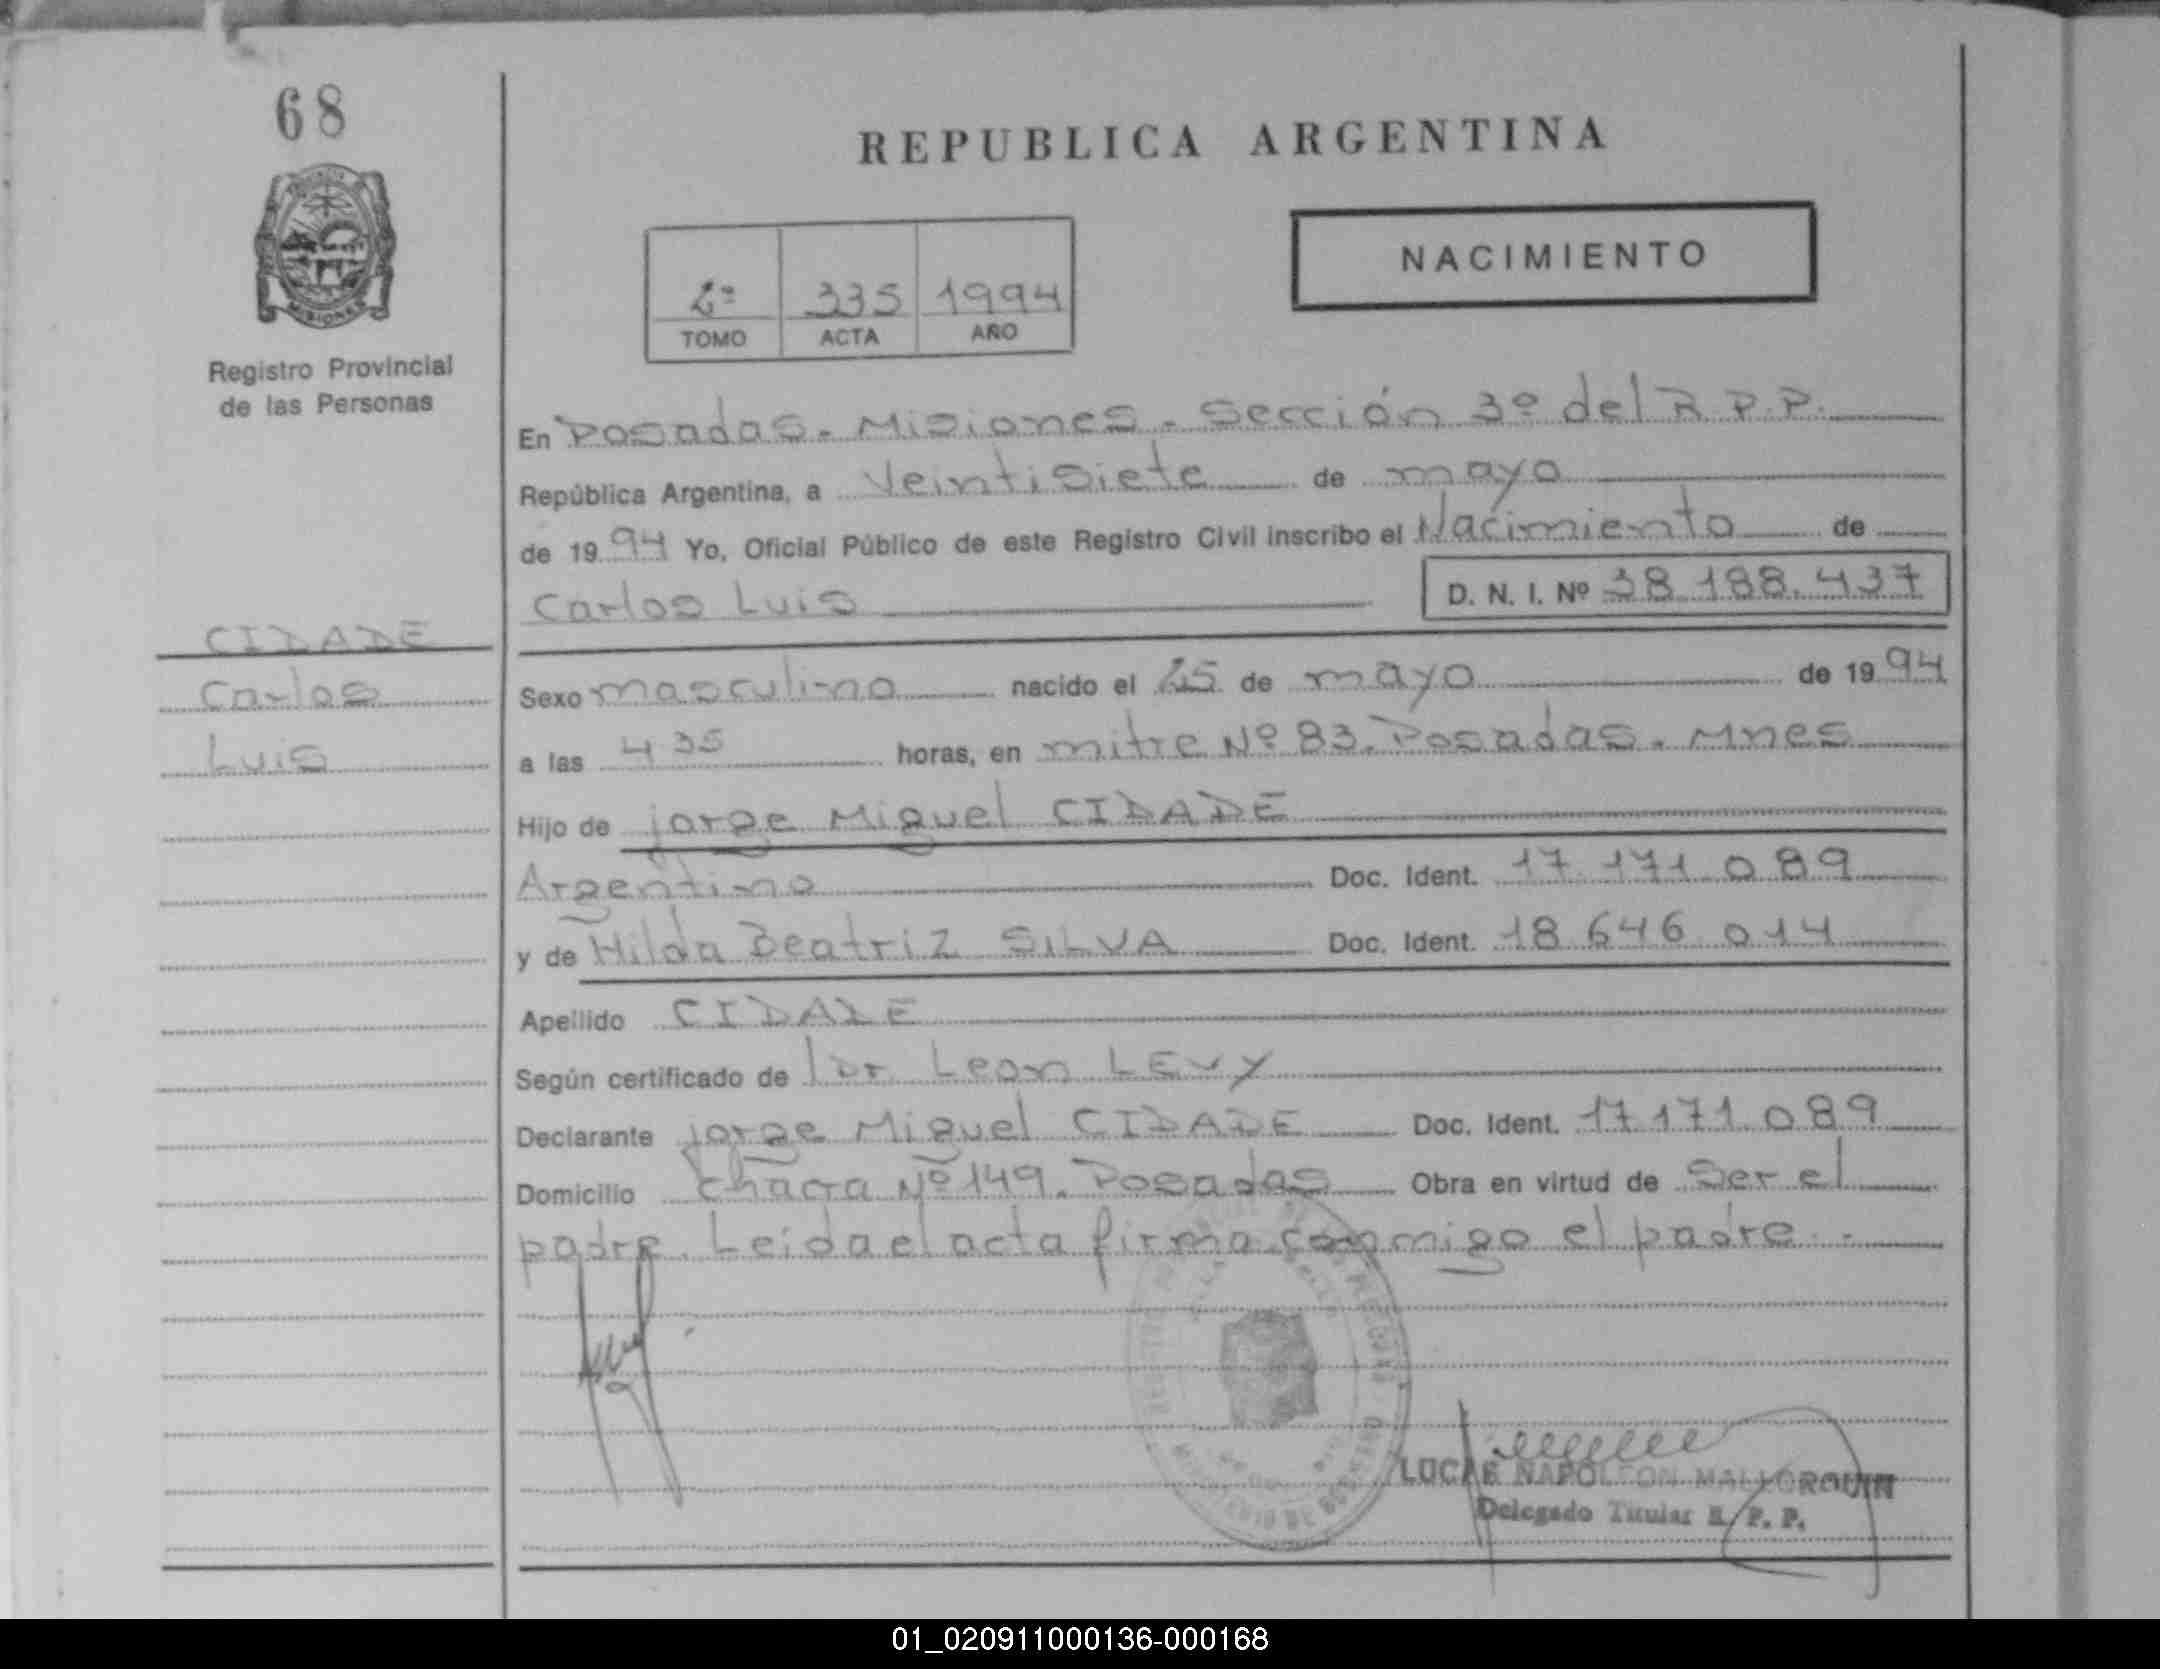 68
REPUBLICA ARGENTINA
NACIMIENTO
2º 335 1994
TOMO ACTA AÑO
MISIONES
Registro Provincial
de las Personas
En Posadas. Misiones. Sección 3º del R.P.P.
República Argentina, a Veintisiete de mayo
de 1994 Yo, Oficial Público de este Registro Civil inscribo el Nacimiento de
Carlos Luis D. N. I. Nº 38.188.437
CIDADE
Carlos
Luis
Sexo masculino nacido el 25 de mayo de 1994
a las 4 35 horas, en mitre Nº 83. Posadas. Mnes
Hijo de jorge Miguel CIDADE
Argentino Doc. Ident. 17.171.089
y de Hilda Beatriz SILVA Doc. Ident. 18.646.014
Apellido CIDADE
Según certificado de Dr. Leon LEVY
Declarante jorge Miguel CIDADE Doc. Ident. 17.171.089
Domicilio chacra Nº 149. Posadas Obra en virtud de Ser el
padre. Leida el acta firma conmigo el padre.
LUCAS NAPOLEON MALLORQUIN
Delegado Titular R. P. P.
01_020911000136-000168